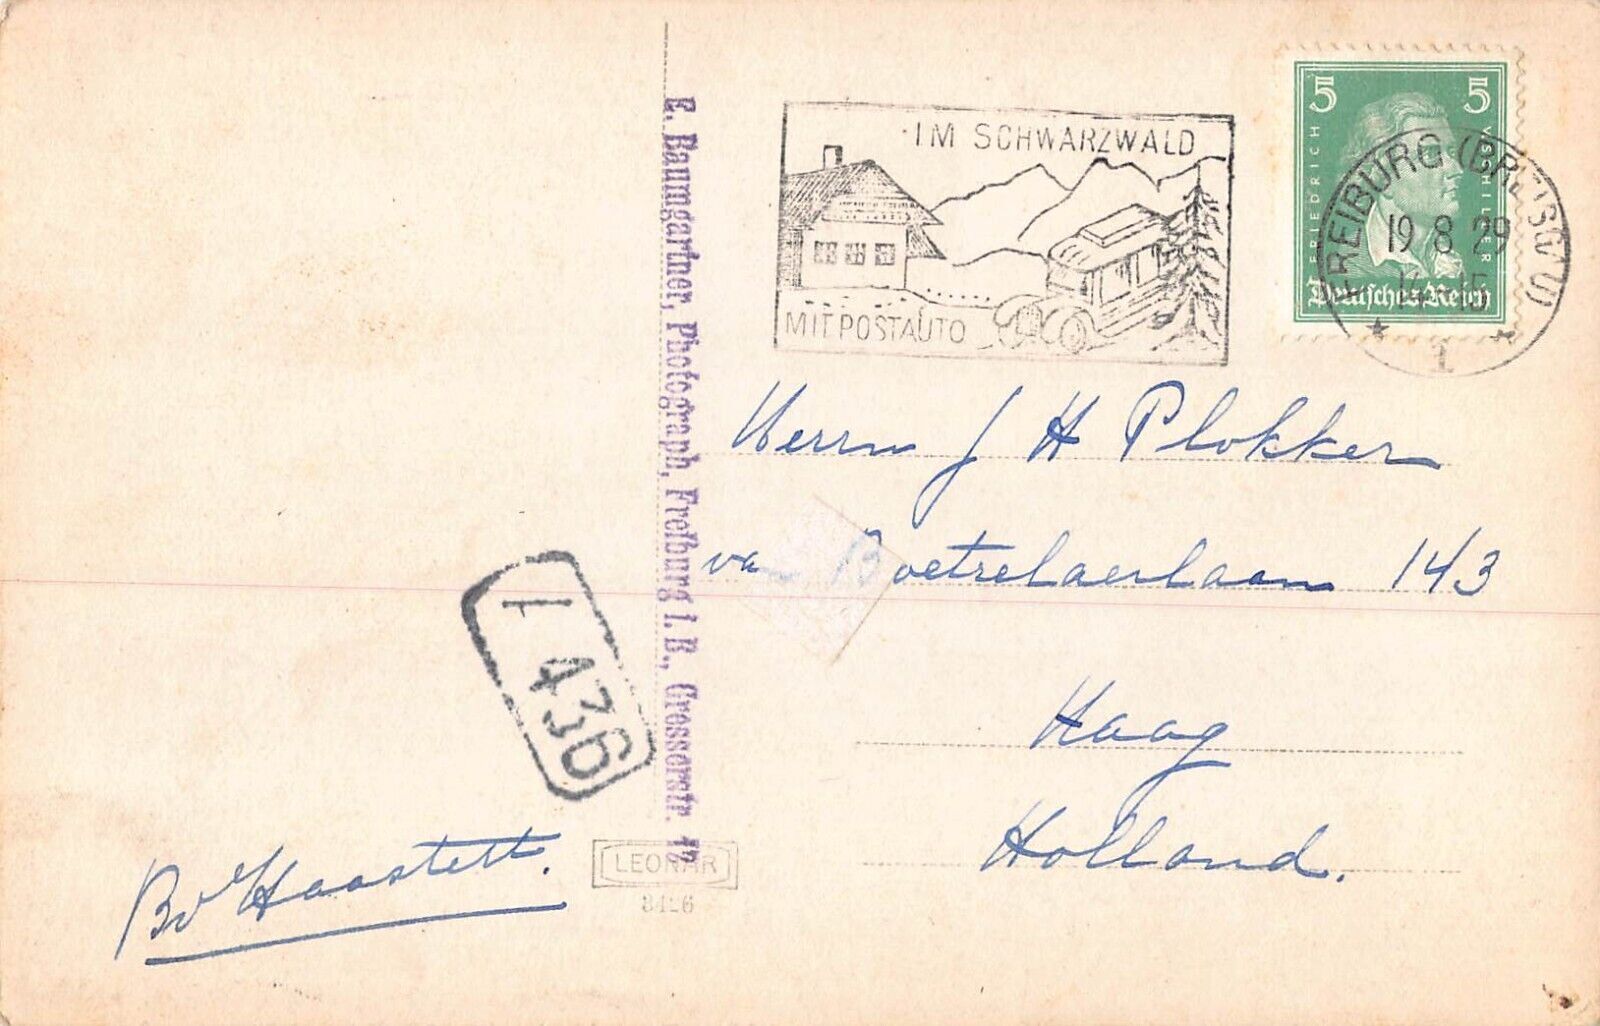 E. Baumgartner, Photograph, Freiburg i. B., Grosserstr.
IM SCHWARZWALD
MIT POSTAUTO
5 5
FRIEDRICH V. SCHILLER
Deutsches Reich
FREIBURG (BREISGAU)
19 8 29
14-15
* 1 *
Herrn J H Plokker
van Boetzelaerlaan 143
Haag
Holland.
436
LEONAR